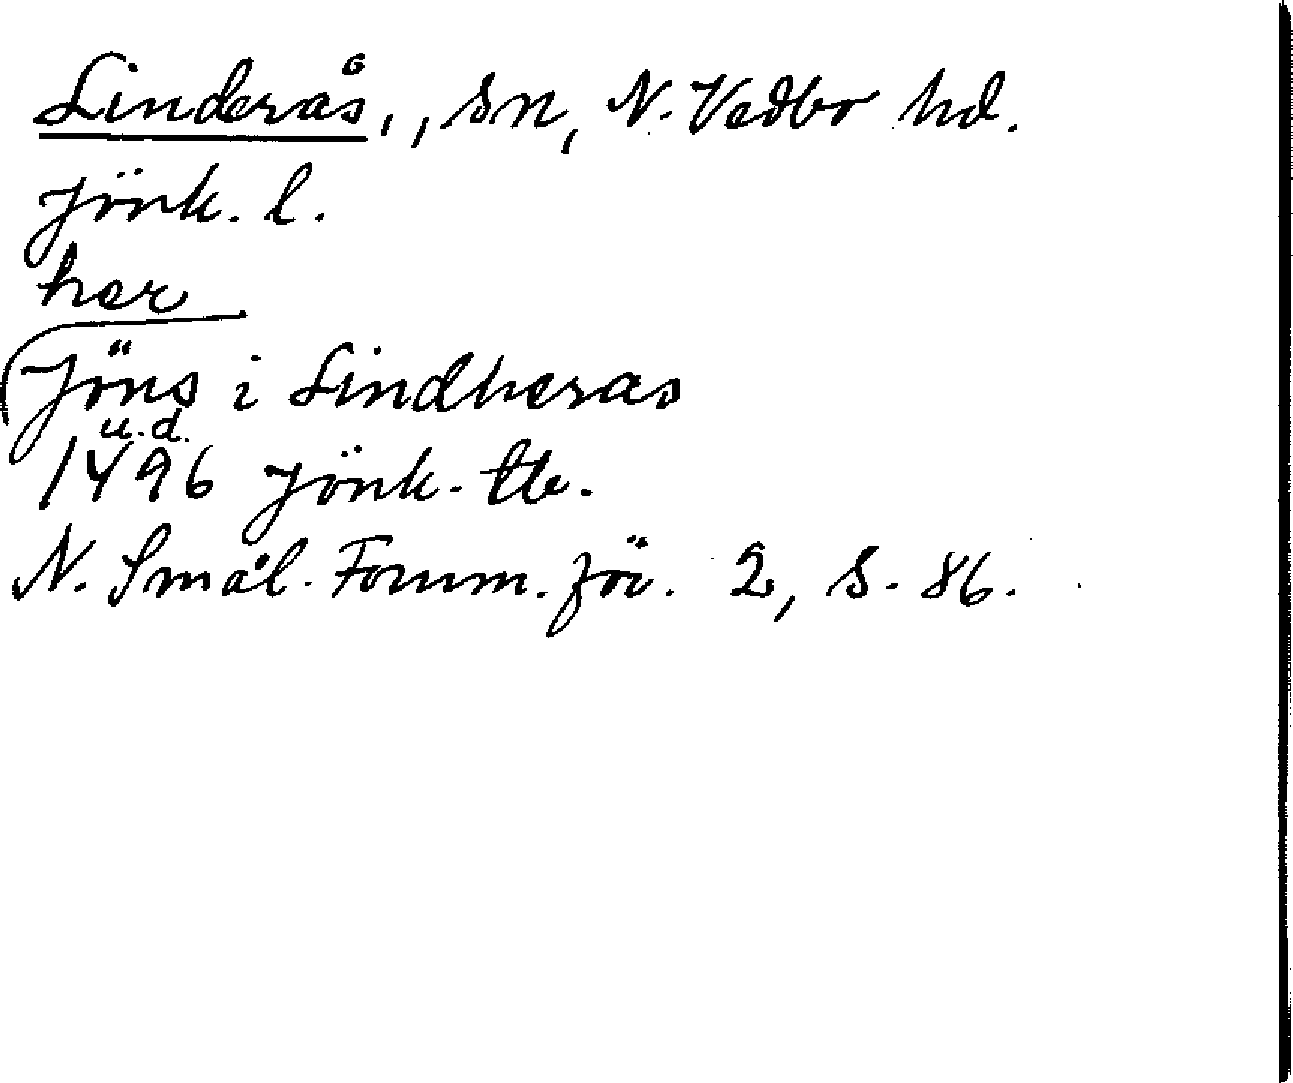 Linderås,, sn, N. Vedbo hd.
Jönk. l.
her
Jöns i Lindheras
u. d.
1496 Jönk. tb.
N. Smål. Fornm. för. 2, s. 86.